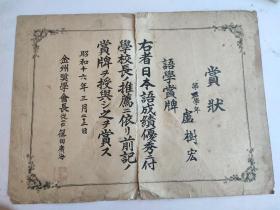 賞狀
第四學年
盧樹宏
語學賞牌
右者日本語成績優秀ニ付
學校長ノ推薦ニ依リ前記ノ
賞牌ヲ授與シ之ヲ賞ス
昭和十六年三月廿三日
金州奬學會長從五位